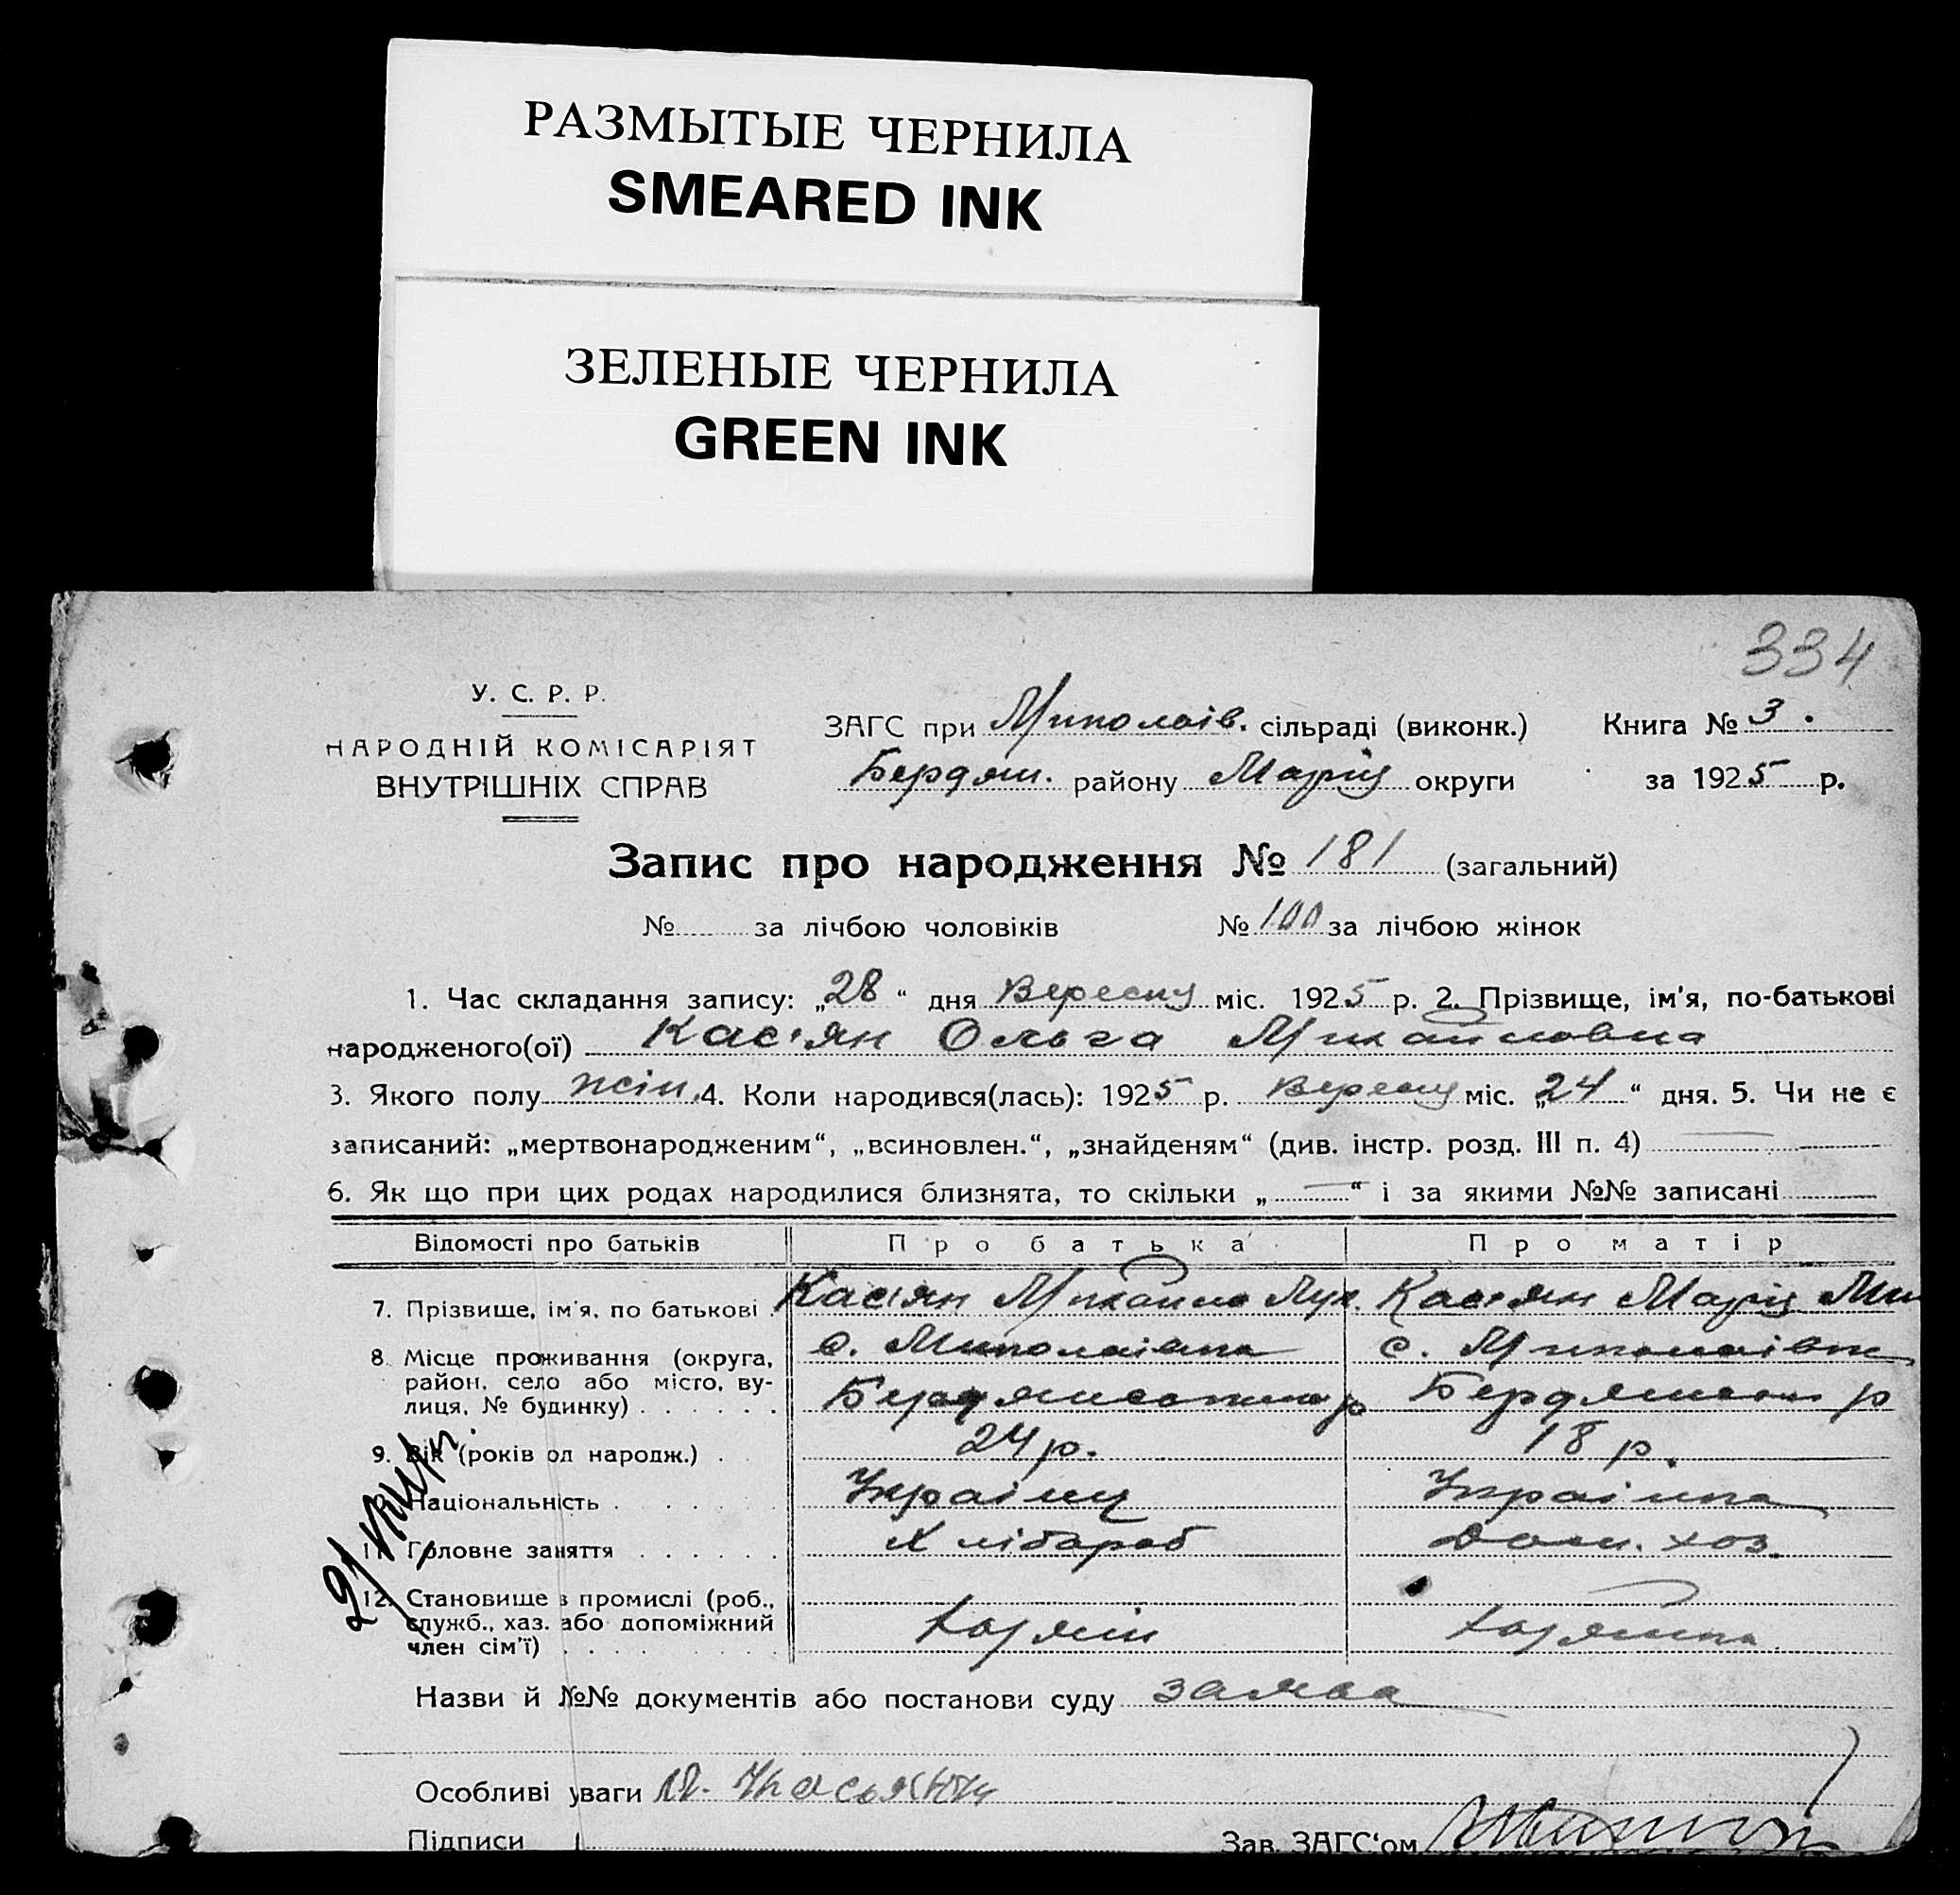 РАЗМЫТЫЕ ЧЕРНИЛА
SMEARED INK
ЗЕЛЕНЫЕ ЧЕРНИЛА
GREEN INK
334
У. С. Р. Р.
НАРОДНІЙ КОМІСАРІЯТ
ВНУТРІШНІХ СПРАВ
ЗАГС при Миколаів. сільраді (виконк.) Книга № 3.
Бердян. району Маріу округи за 1925 р.
Запис про народження № 181 (загальний)
№ за лічбою чоловіків № 100 за лічбою жінок
1. Час складання запису: „28“ дня Вересну міс. 1925 р. 2. Прізвище, ім'я, по-батькові
народженого(ої) Кас'ян Ольга Михайловна
3. Якого полу жін. 4. Коли народився(лась): 1925 р. Вересну міс. „24“ дня. 5. Чи не є
записаний: „мертвонародженим“, „всиновлен.“, „знайденям“ (див. інстр. розд. III п. 4) —
6. Як що при цих родах народилися близнята, то скільки „—“ і за якими №№ записані
Відомості про батьків Про батька Про матір
7. Прізвище, ім'я, по батькові Кас'ян Михайло Лук. Кас'ян Марія Ми
8. Місце проживання (округа, район, село або місто, вулиця, № будинку) с. Миколаівка с. Миколаівка
Бердянського р Бердянськ р
9. Вік (років од народж.) 24 р. 18 р.
Національність Украінц Украінка
11. Головне заняття Хлібароб Дом. хоз.
12. Становище в промислі (роб., служб., хаз. або допоміжний член сім'ї) хазяін хазяйка
Назви й №№ документів або постанови суду заява
Особливі уваги
Підписи Зав. ЗАГС'ом